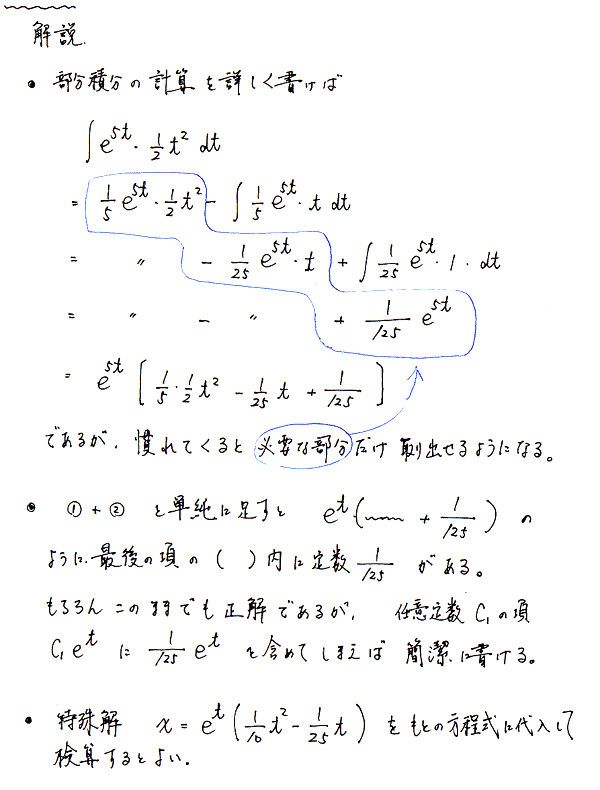 解説.
• 部分積分の計算を詳しく書けば
∫ e^{5t} · 1/2 t² dt
= 1/5 e^{5t} · 1/2 t² - ∫ 1/5 e^{5t} · t dt
= 〃 - 1/25 e^{5t} · t + ∫ 1/25 e^{5t} · 1 · dt
= 〃 - 〃 + 1/125 e^{5t}
= e^{5t} [ 1/5 · 1/2 t² - 1/25 t + 1/125 ]
であるが、慣れてくると必要な部分だけ取出せるようになる。
• ① + ② と単純に足すと e^t · ( 〰 + 1/125 ) の
ように、最後の項の ( ) 内に定数 1/125 がある。
もちろんこのままでも正解であるが、 任意定数 C₁ の項
C₁ e^t に 1/125 e^t を含めてしまえば 簡潔に書ける。
• 特殊解 x = e^t ( 1/10 t² - 1/25 t ) をもとの方程式に代入して
検算するとよい.